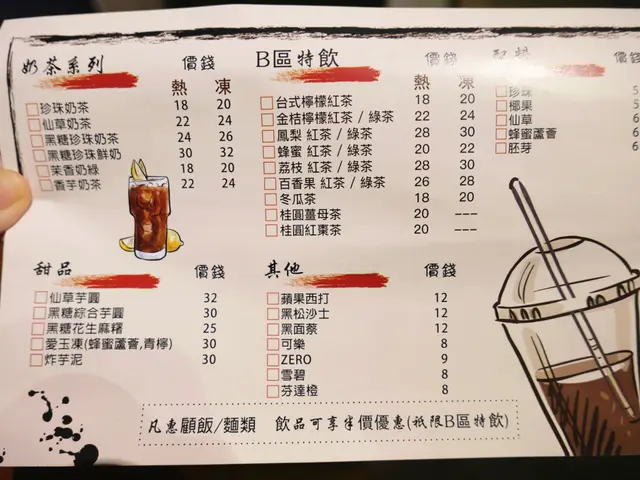 奶茶系列 價錢
熱 凍
珍珠奶茶 18 20
仙草奶茶 22 24
黑糖珍珠奶茶 24 26
黑糖珍珠鮮奶 30 32
茉香奶綠 18 20
香芋奶茶 22 24
B區特飲 價錢
熱 凍
台式檸檬紅茶 18 20
金桔檸檬紅茶 / 綠茶 22 24
鳳梨 紅茶 / 綠茶 28 30
蜂蜜 紅茶 / 綠茶 20 22
荔枝 紅茶 / 綠茶 28 30
百香果 紅茶 / 綠茶 26 28
冬瓜茶 18 20
桂圓薑母茶 20 ---
桂圓紅棗茶 20 ---
價錢
珍珠 5
椰果 5
仙草 6
蜂蜜蘆薈 6
胚芽 6
甜品 價錢
仙草芋圓 32
黑糖綜合芋圓 30
黑糖花生麻糬 25
愛玉凍(蜂蜜蘆薈,青檸) 30
炸芋泥 30
其他 價錢
蘋果西打 12
黑松沙士 12
黑面蔡 12
可樂 8
ZERO 9
雪碧 8
芬達橙 8
凡惠顧飯/麵類 飲品可享半價優惠(祗限B區特飲)